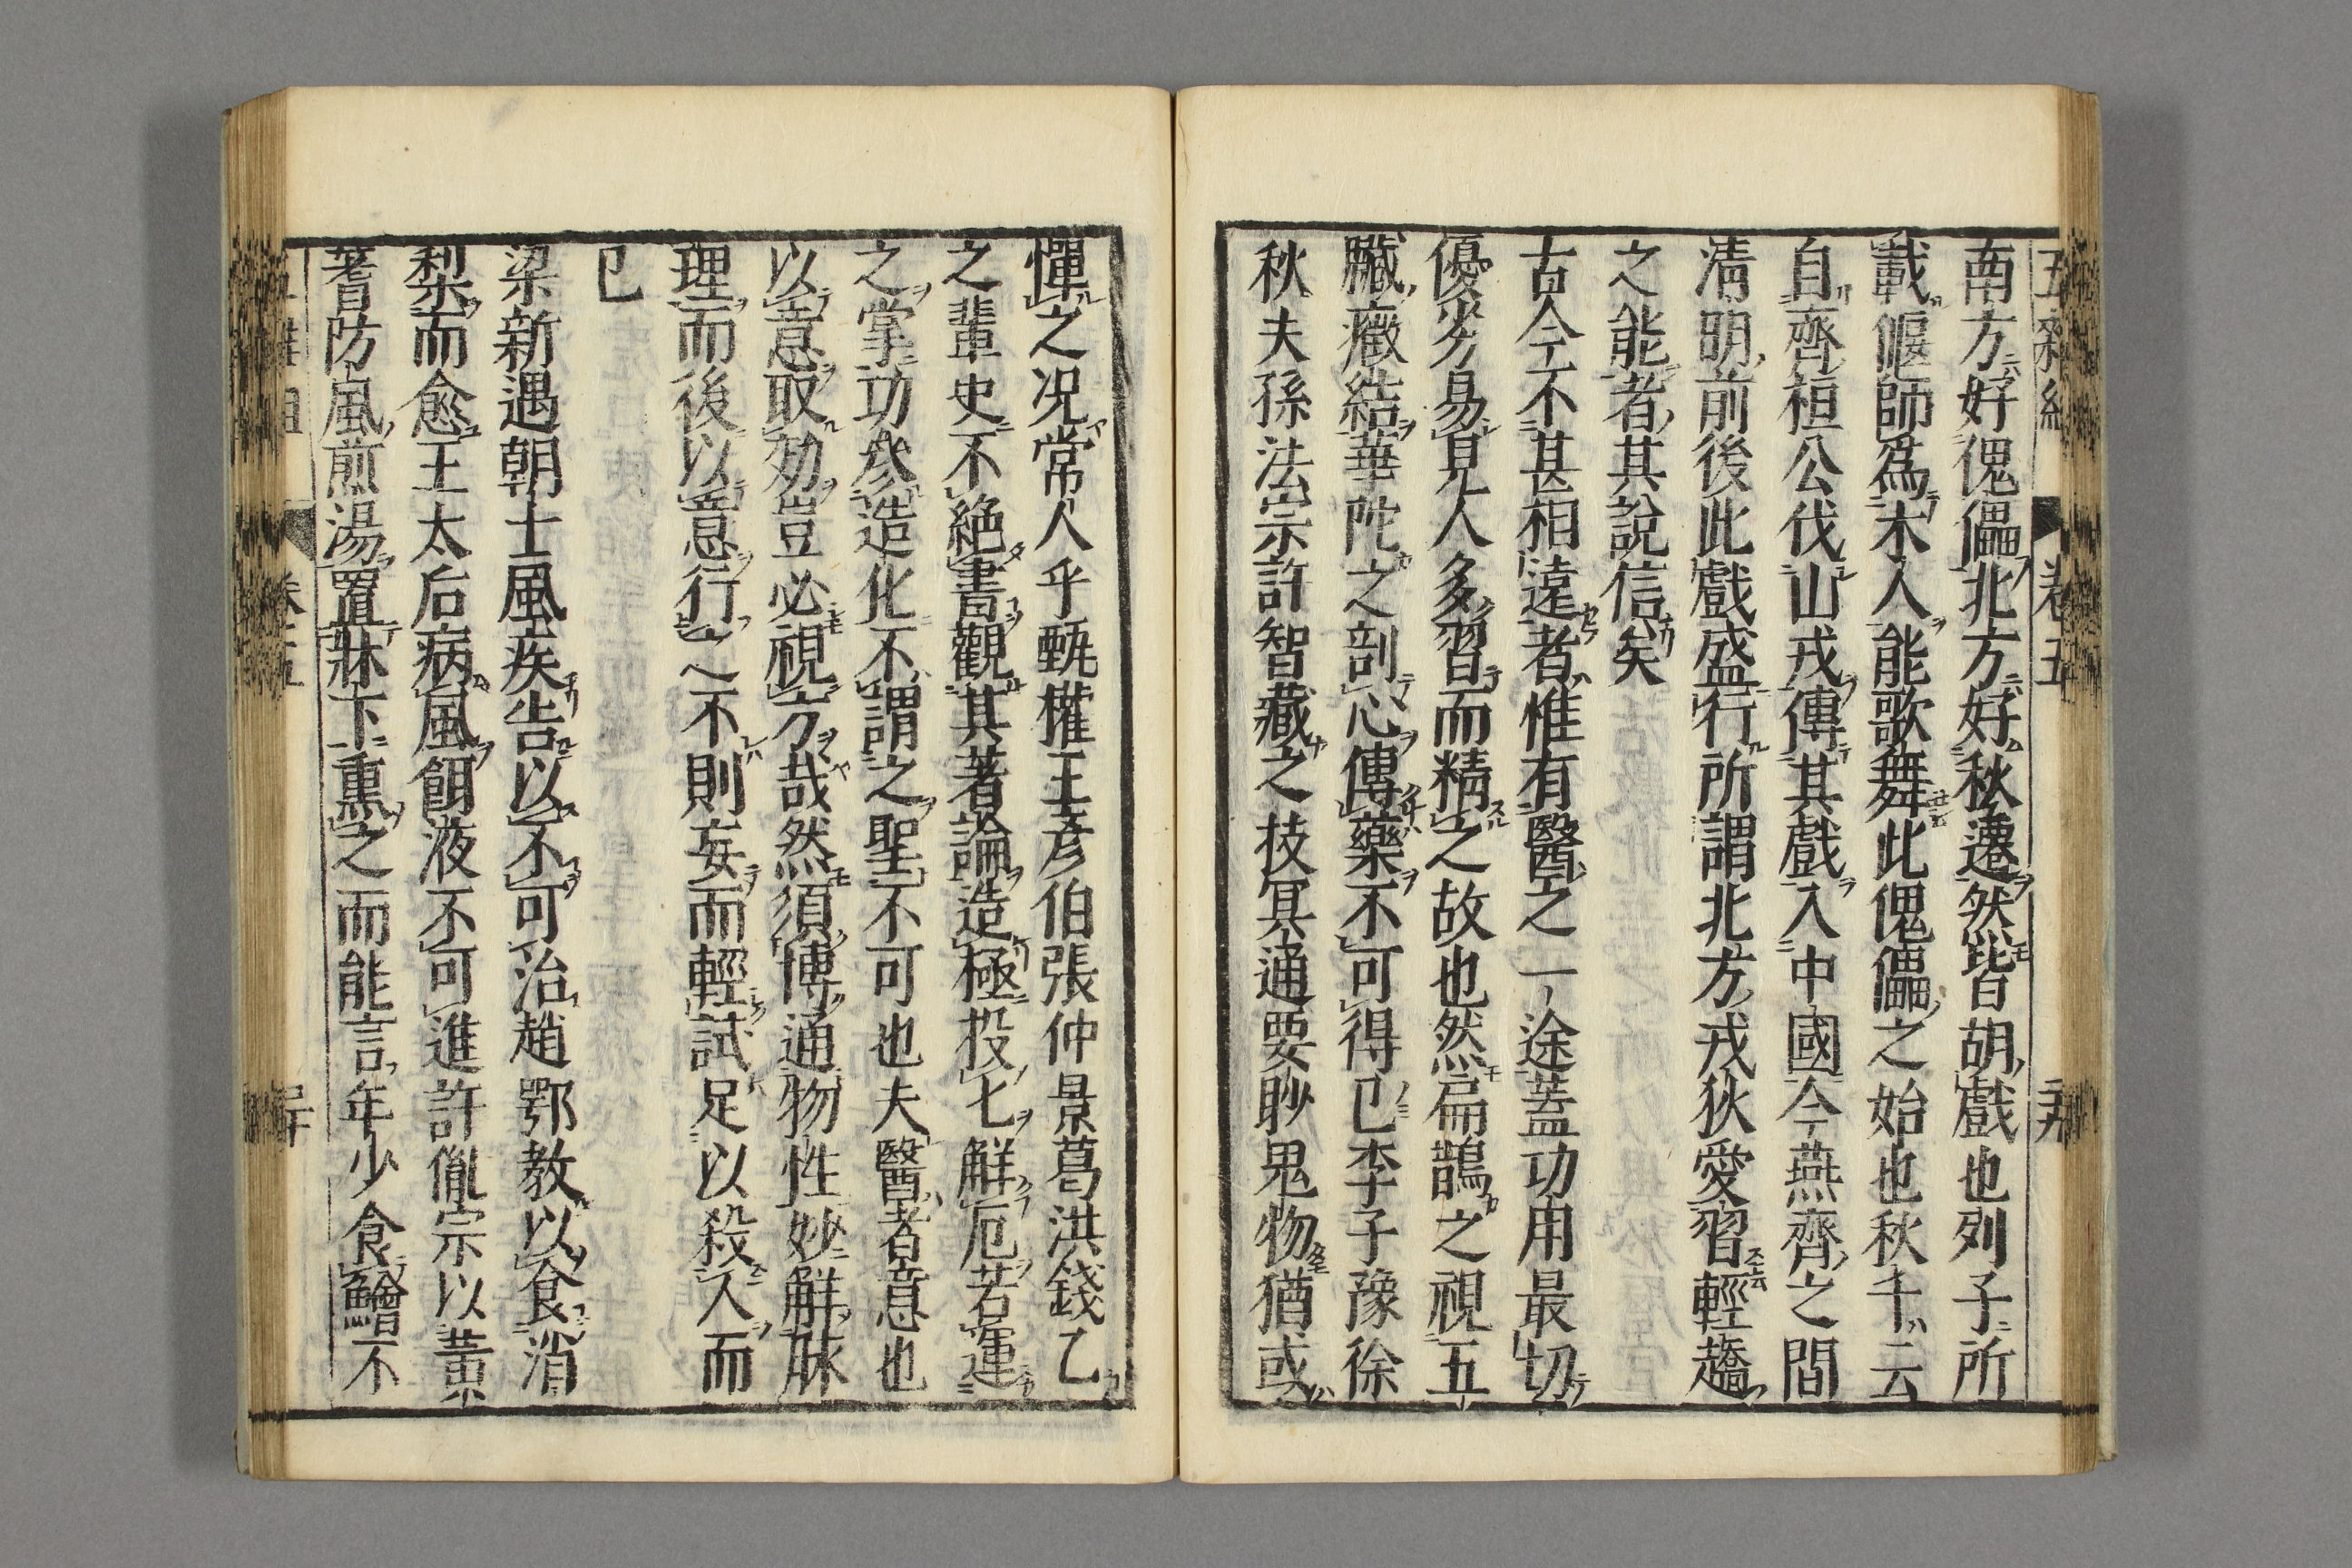 五雜組 卷五
南方好傀儡北方好秋遷然皆胡戲也列子所
載偃師爲木人能歌舞此傀儡之始也秋千云
自齊桓公伐山戎傳其戲入中國今燕齊之間
清明前後此戲盛行所謂北方戎狄愛習輕趫
之能者其說信矣
古今不甚相遠者惟有醫之一途蓋功用最切
優劣易見人多習而精之故也然扁鵲之視五
臟癥結華陀之剖心傳藥不可得已李子豫徐
秋夫孫法宗許智藏之技冥通要眇鬼物猶或
憚之况常人乎甄權王彥伯張仲景葛洪錢乙
之輩史不絕書觀其著論造極投匕解厄若運
之掌功參造化不謂之聖不可也夫醫者意也
以意取効豈必視方哉然須博通物性妙解脉
理而後以意行之不則妄而輕試足以殺人而
已
梁新遇朝士風疾告以不可治趙鄂教以食消
梨而愈王太后病風餌液不可進許胤宗以黃
蓍防風煎湯置牀下熏之而能言年少食鱠不